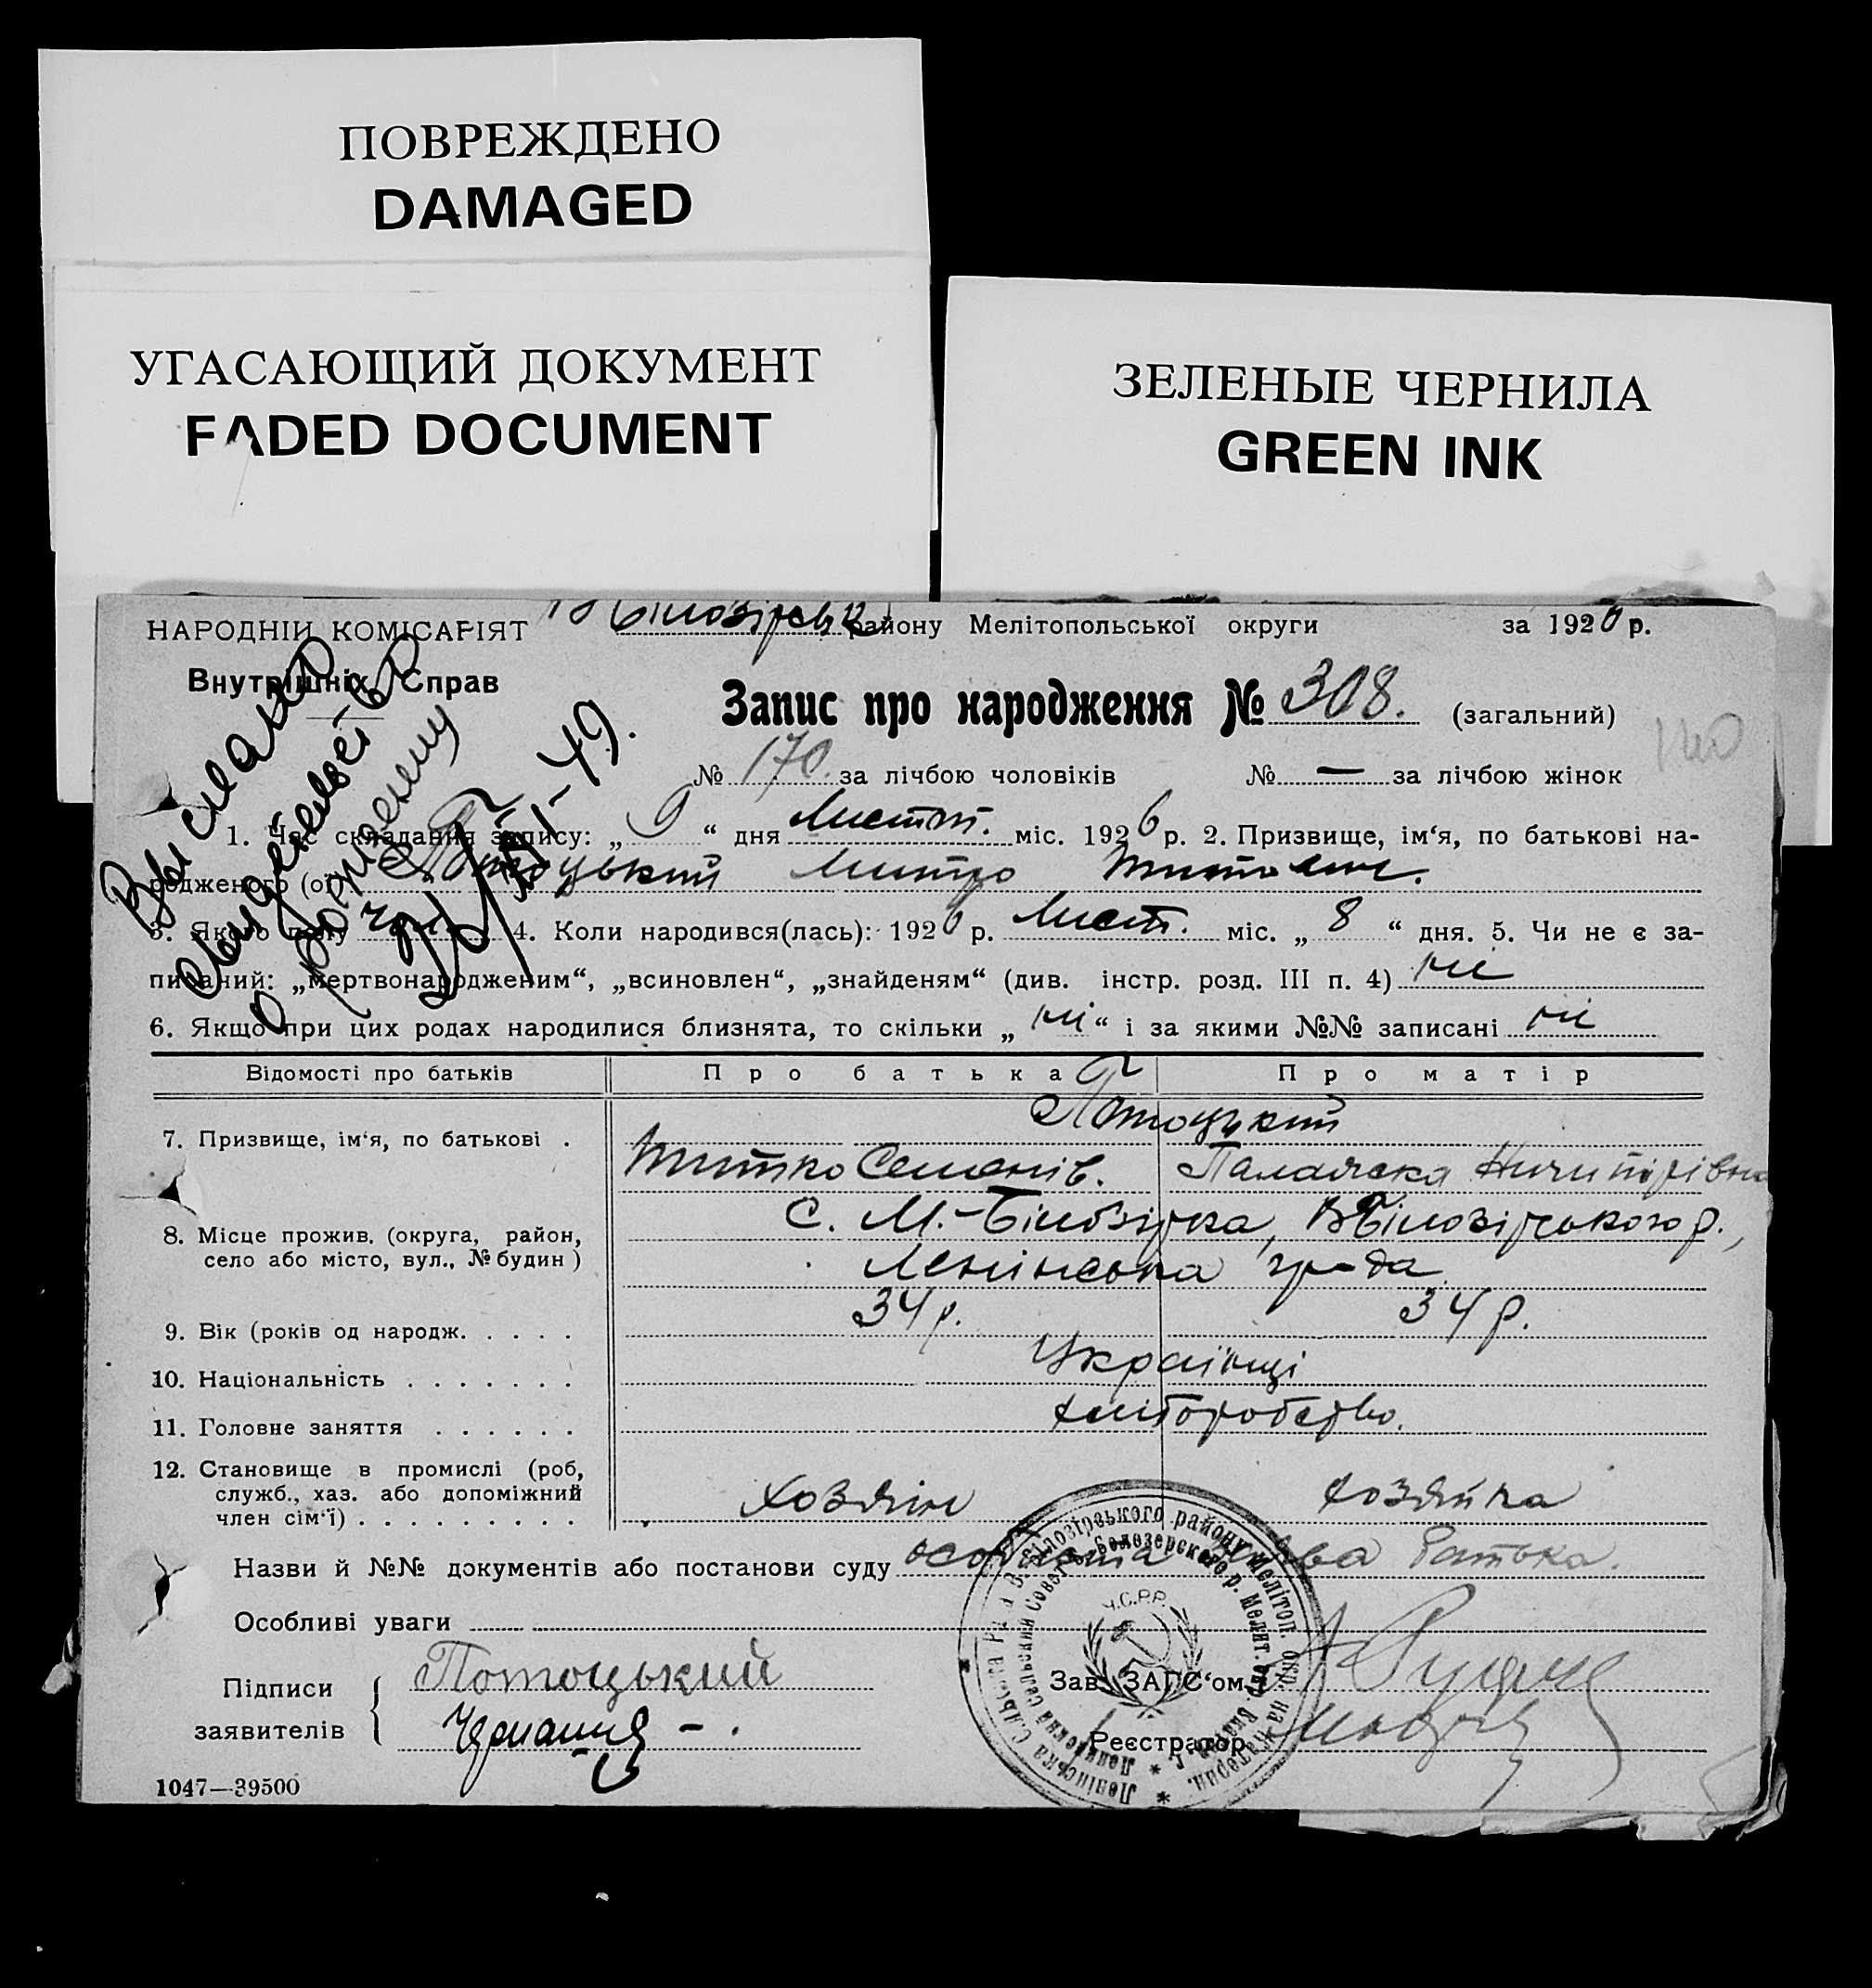 ПОВРЕЖДЕНО
DAMAGED
УГАСАЮЩИЙ ДОКУМЕНТ
FADED DOCUMENT
ЗЕЛЕНЫЕ ЧЕРНИЛА
GREEN INK
НАРОДНІЙ КОМІСАРІЯТ
Внутрішніх Справ
району Мелітопольської округи за 1926 р.
Запис про народження № 308. (загальний)
№ 170. за лічбою чоловіків № — за лічбою жінок
Выслано
свидетельс-во
о рождении
1. Час складання запису: „ 9 “ дня Листоп. міс. 1926 р. 2. Призвище, ім‘я, по батькові на-
родженого (ої) Потоцький Митро Титович.
3. Якого полу чол. 4. Коли народився(лась): 1926 р. Лист. міс. „ 8 “ дня. 5. Чи не є за-
писаний: „мертвонародженим“, „всиновлен“, „знайденям“ (див. інстр. розд. III п. 4) ні
6. Якщо при цих родах народилися близнята, то скільки „ ні “ і за якими №№ записані ні
Відомості про батьків Про батька Про матір
Потоцький
7. Призвище, ім‘я, по батькові .
Титко Семенів. Палажка Ничипірівна
8. Місце прожив. (округа, район, село або місто, вул., № будин )
С. М.-Білозірка, В Білозірського р.,
Ленінська г рада
9. Вік (років од народж. . . . . 34 р. 34 р.
10. Національність . . . . . . . Українці
11. Головне заняття . . . . . . хліборобство.
12. Становище в промислі (роб,
служб., хаз. або допоміжний
член сім‘ї) . . . . . . . . . Хозяін хозяйка
Назви й №№ документів або постанови суду особиста заява батька.
Особливі уваги
Підписи
заявителів
Потоцький
Зав. ЗАГС‘ом
Реєстратор
У.С.Р.Р.
1047—39500